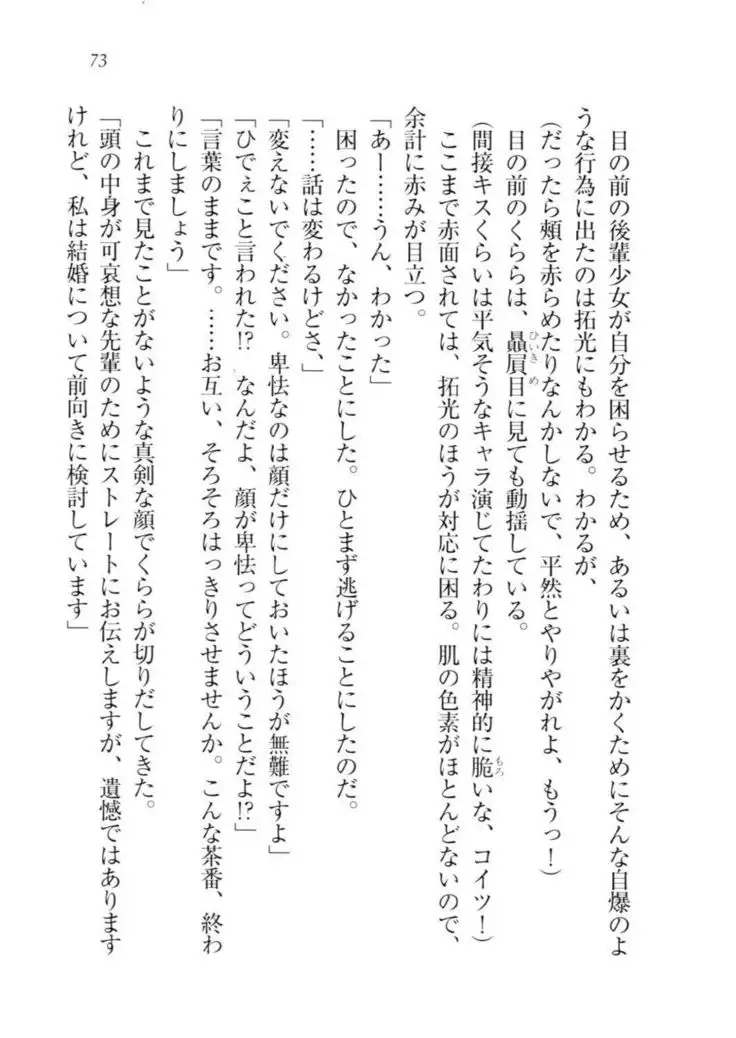 73
目の前の後輩少女が自分を困らせるため、あるいは裏をかくためにそんな自爆のよ
うな行為に出たのは拓光にもわかる。わかるが、
(だったら頬を赤らめたりなんかしないで、平然とやりやがれよ、もうっ!)
目の前のくららは、贔屓目に見ても動揺している。
ひいきめ
(間接キスくらいは平気そうなキャラ演じてたわりには精神的に脆いな、コイツ!)
もろ
ここまで赤面されては、拓光のほうが対応に困る。肌の色素がほとんどないので、
余計に赤みが目立つ。
「あー……うん、わかった」
困ったので、なかったことにした。ひとまず逃げることにしたのだ。
「……話は変わるけどさ、」
「変えないでください。卑怯なのは顔だけにしておいたほうが無難ですよ」
「ひでぇこと言われた!? なんだよ、顔が卑怯ってどういうことだよ!?」
「言葉のままです。……お互い、そろそろはっきりさせませんか。こんな茶番、終わ
りにしましょう」
これまで見たことがないような真剣な顔でくららが切りだしてきた。
「頭の中身が可哀想な先輩のためにストレートにお伝えしますが、遺憾ではあります
けれど、私は結婚について前向きに検討しています」